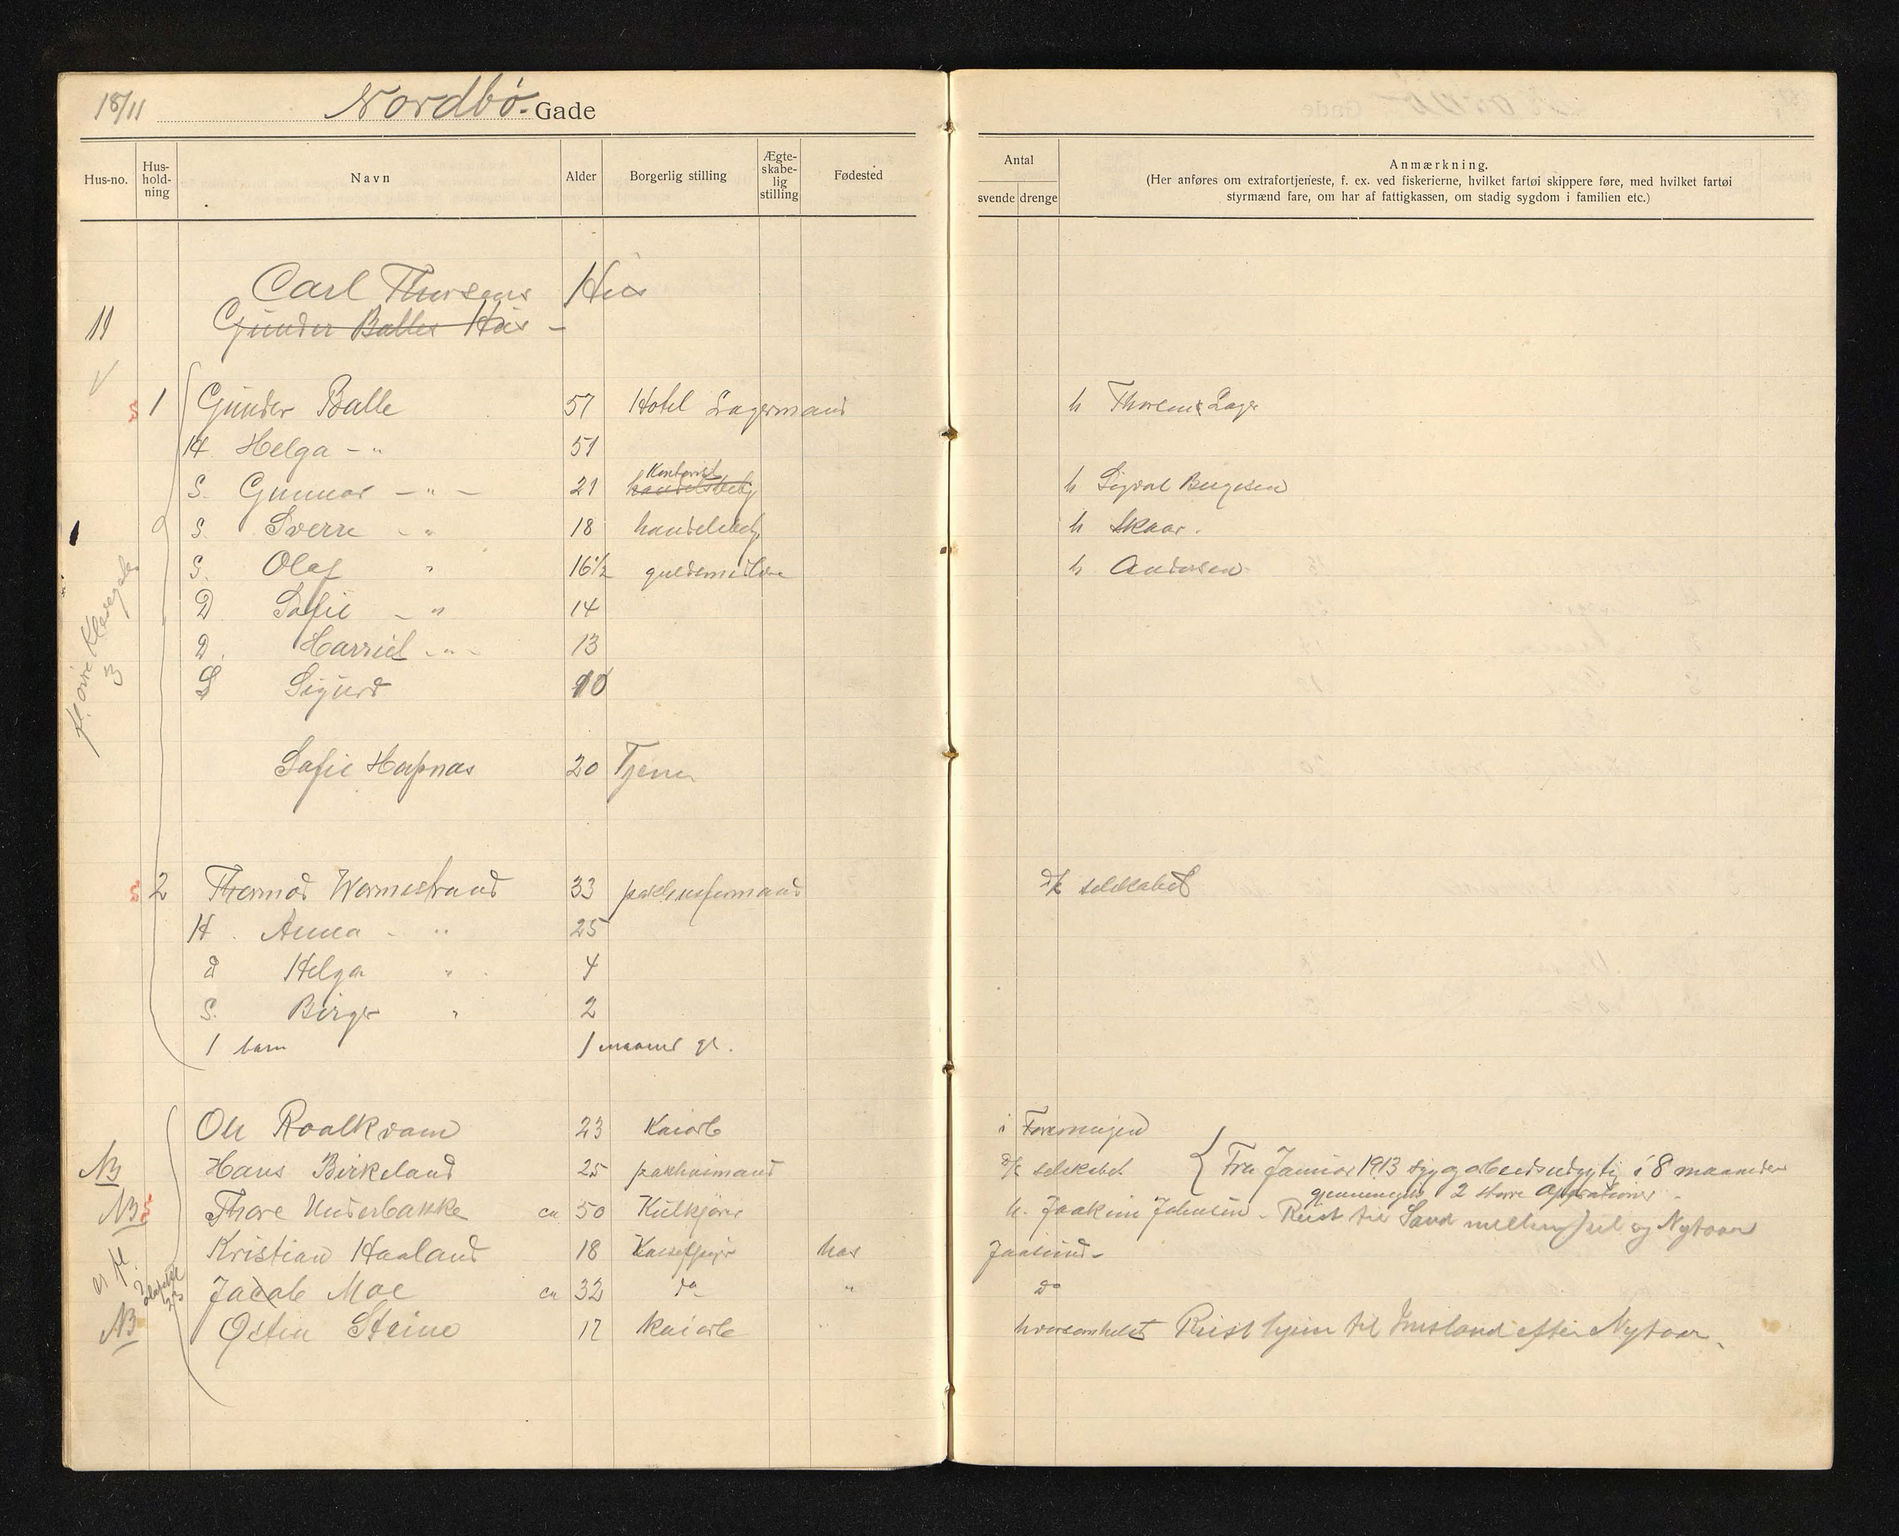 18/11 Nordbø- Gade
Hus-no. Hus-hold-ning Navn Alder Borgerlig stilling Ægte-skabe-lig stilling Fødested
Antal svende drenge
Anmærkning.
(Her anføres om extrafortjeneste, f. ex. ved fiskerierne, hvilket fartøi skippere føre, med hvilket fartøi
styrmænd fare, om har af fattigkassen, om stadig sygdom i familien etc.)
Carl Thorsens Hus
11 Gunder Balles Hus -
5 1 Gunder Balle 57 Hotel Lagermand h Lager
H. Helga - " 51
S. Gunnar - " - 21 Kontorist h Sigval Bergesen
S. Sverre - " 18 handelsbetj h Skaar.
S. Olaf " 16 1/2 h Andersen
D Sofie - " 14
D. Harriet - " - 13
S Sigurd 10
3
Sofie 20 Tjener
5 2 Thormod Wormestrand 33 pakhusformand d/s selskabet
H. Anna - " 25
d Helga " 4
S. Birger " 2
1 barn 1 maaned gl.
Ole Roalkvam 23 Kaiarb i Foreningen
NB Hans Birkeland 25 pakhusmand d/s selskabet { Fra Januar 1913 syg og arbeidsudygtig i 8 maaneder
gjennemgik 2 store Operationer -
NB 5 Thore Underbakke ca 50 Kulkjører h. Joakim Johnsen - Reist til Sand mellem Jul og Nytaar
Kristian Haaland 18 hos
Jacob Moe ca 32 do " do
NB Østen Steine 17 kaiarb hvorsomhelst Reist hjem til Imsland efter Nytaar.